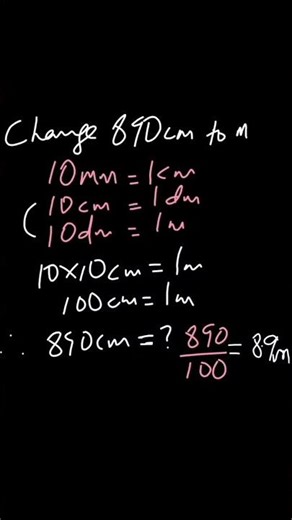 Change 890cm to m
10mm = 1cm
(10cm = 1dm
10dm = 1m
10×10cm = 1m
100cm = 1m
∴ 890cm = ? 890/100 = 8.9m